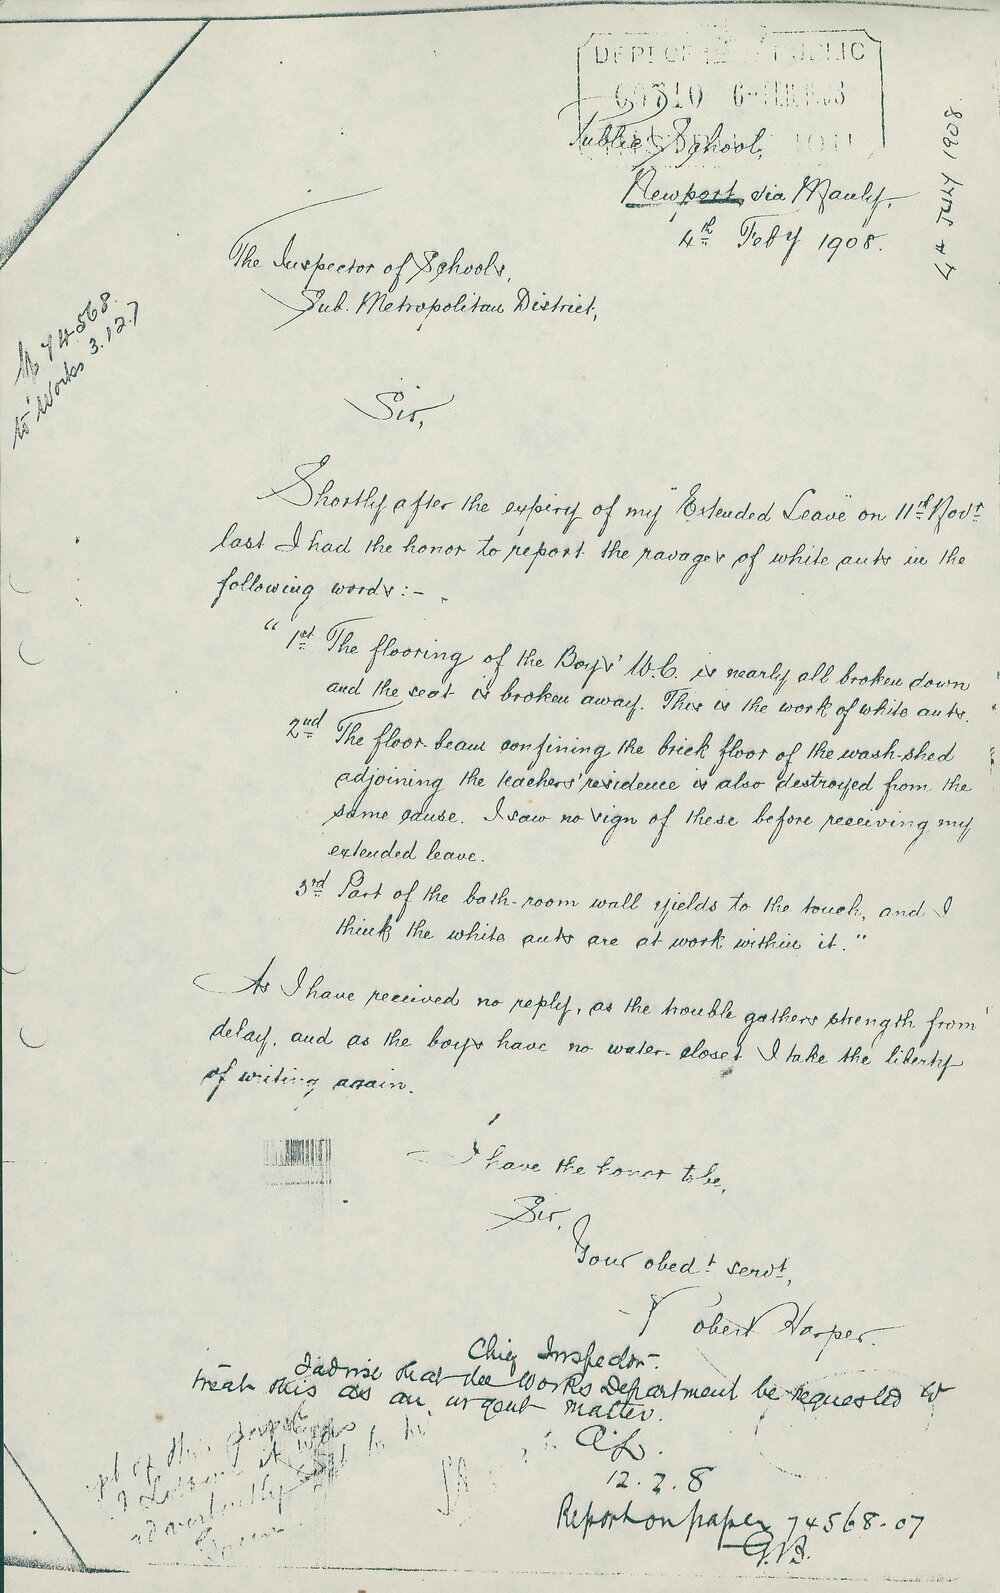 DEPT OF PUBLIC
Public School,
Newport, via Manly.
4th Feby 1908.
4 JULY 1908
The Inspector of Schools,
Sub. Metropolitan District,
74568
to Works 3.12.7
Sir,
Shortly after the expiry of my "Extended Leave" on 11th Novr
last I had the honor to report the ravages of white ants in the
following words:-
"1st The flooring of the Boys' W.C. is nearly all broken down
and the seat is broken away. This is the work of white ants.
2nd The floor-beam confining the brick floor of the wash-shed
adjoining the teachers' residence is also destroyed from the
same cause. I saw no sign of these before receiving my
extended leave.
3rd Part of the bath-room wall yields to the touch, and I
think the white ants are at work within it."
As I have received no reply, as the trouble gathers strength from
delay, and as the boys have no water-closet I take the liberty
of writing again.
I have the honor to be,
Sir,
Your obedt servt,
Robert Harper.
Chief Inspector.
I advise that the Works Department be requested to
treat this as an urgent matter.
12.2.8
Report on paper 74568-07